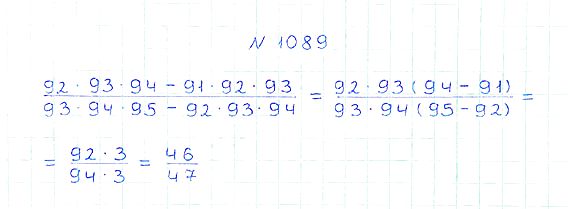 N 1089
92 · 93 · 94 - 91 · 92 · 93 / 93 · 94 · 95 - 92 · 93 · 94 = 92 · 93 ( 94 - 91) / 93 · 94 (95 - 92) =
= 92 · 3 / 94 · 3 = 46 / 47